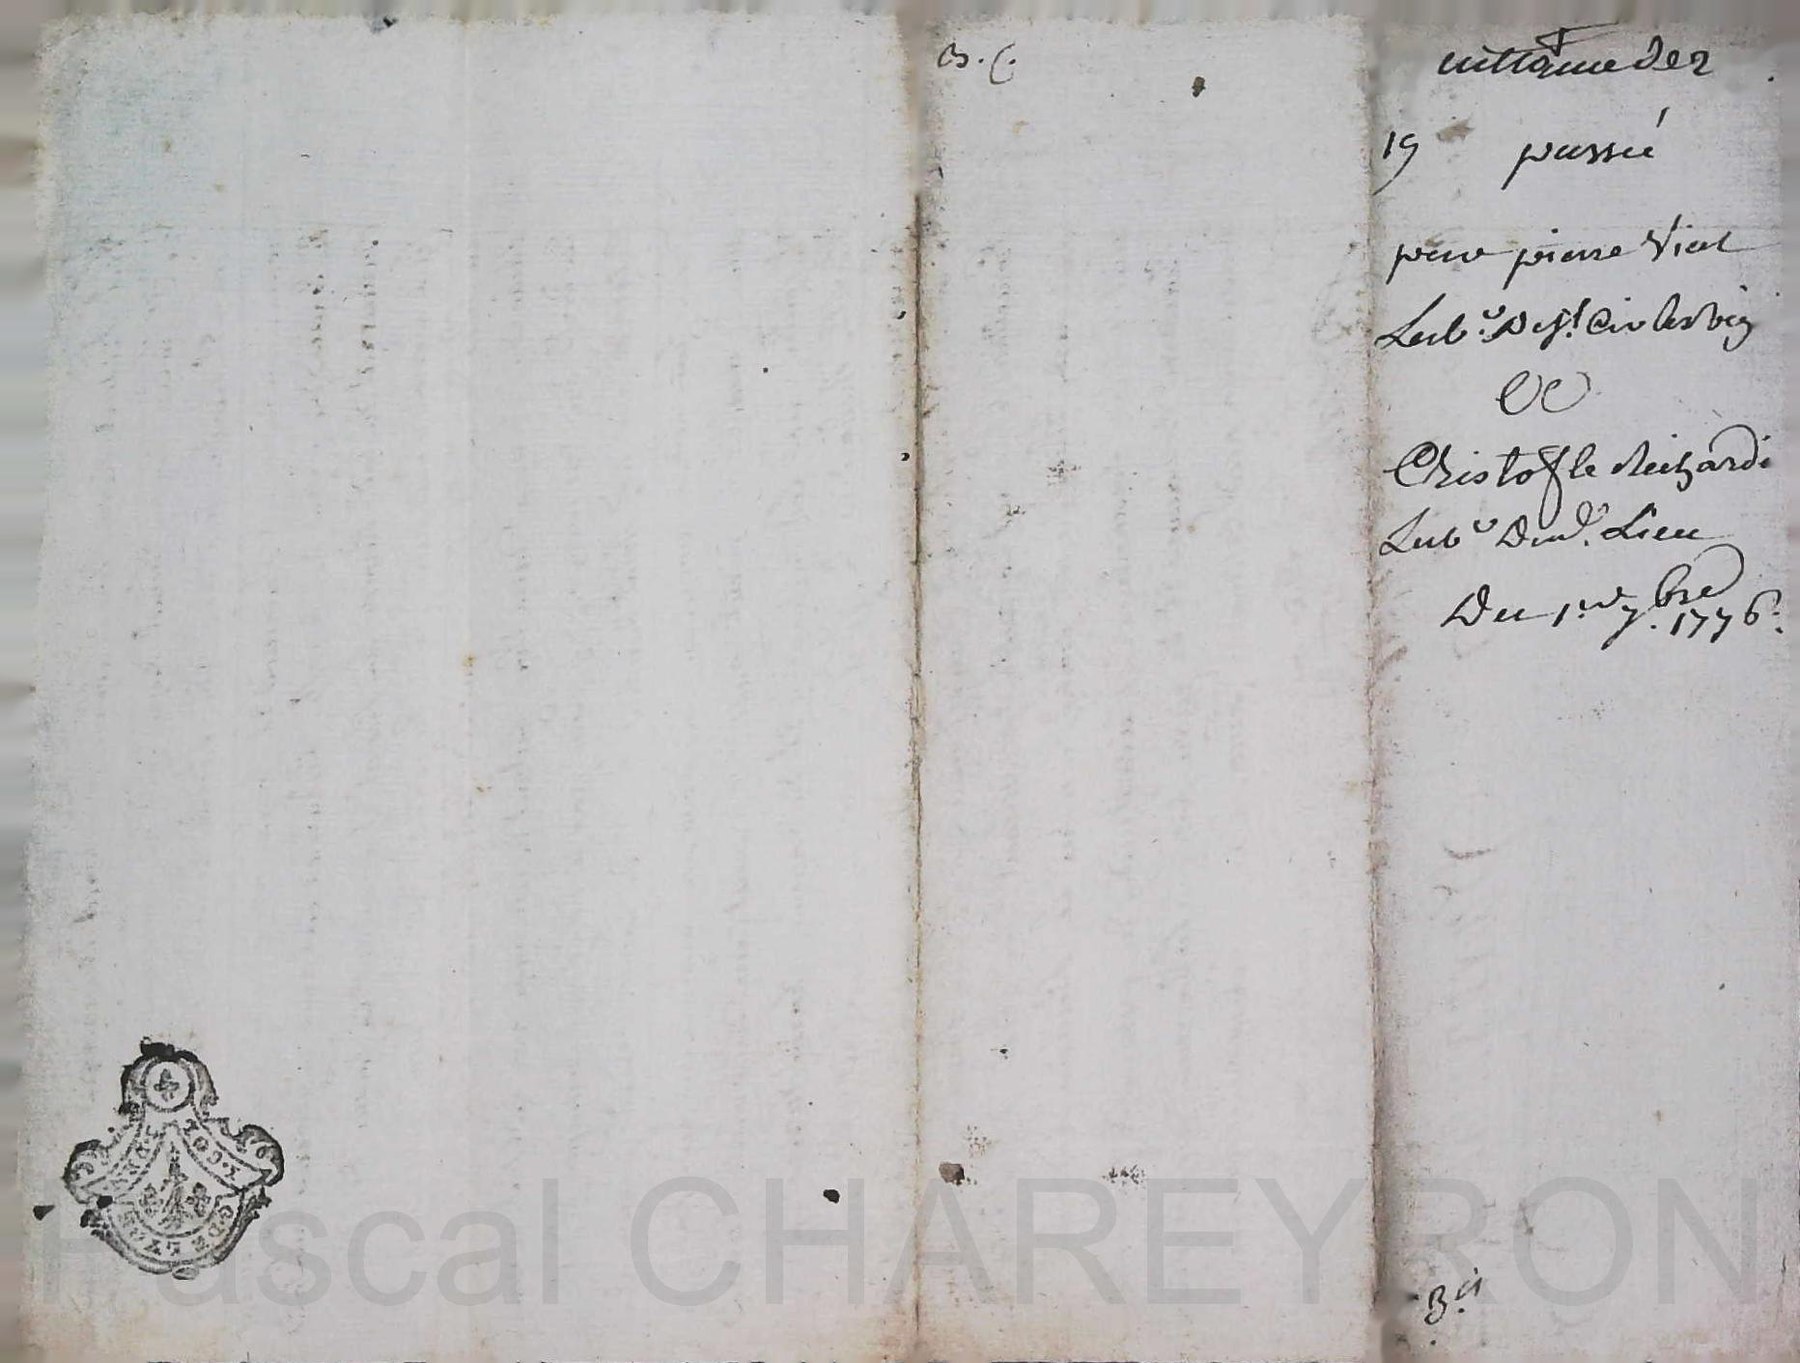 B. C.
quittance de 2
19 passé
pour pierre Vial
Lab.r de St. Cir les Vig
et
Christofle Richardi
Lab.r dud. Lieu
Du 1.er 7.bre 1776.
Pascal CHAREYRON